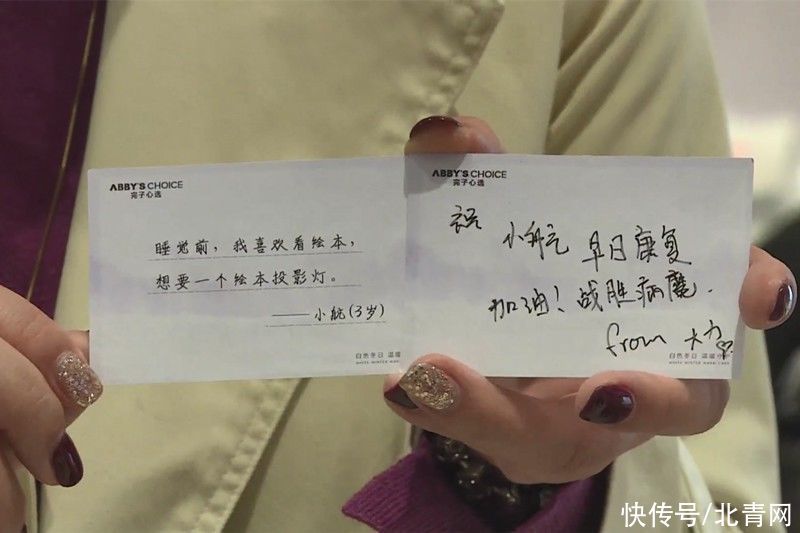 ABBY'S CHOICE
完子心选
睡觉前，我喜欢看绘本，
想要一个绘本投影灯。
——小航(3岁)
白色冬日 温暖
ABBY'S CHOICE
完子心选
祝
小航 早日康复
加油！战胜病魔.
from 大力♡
白色冬日 温暖
快传号/北青网